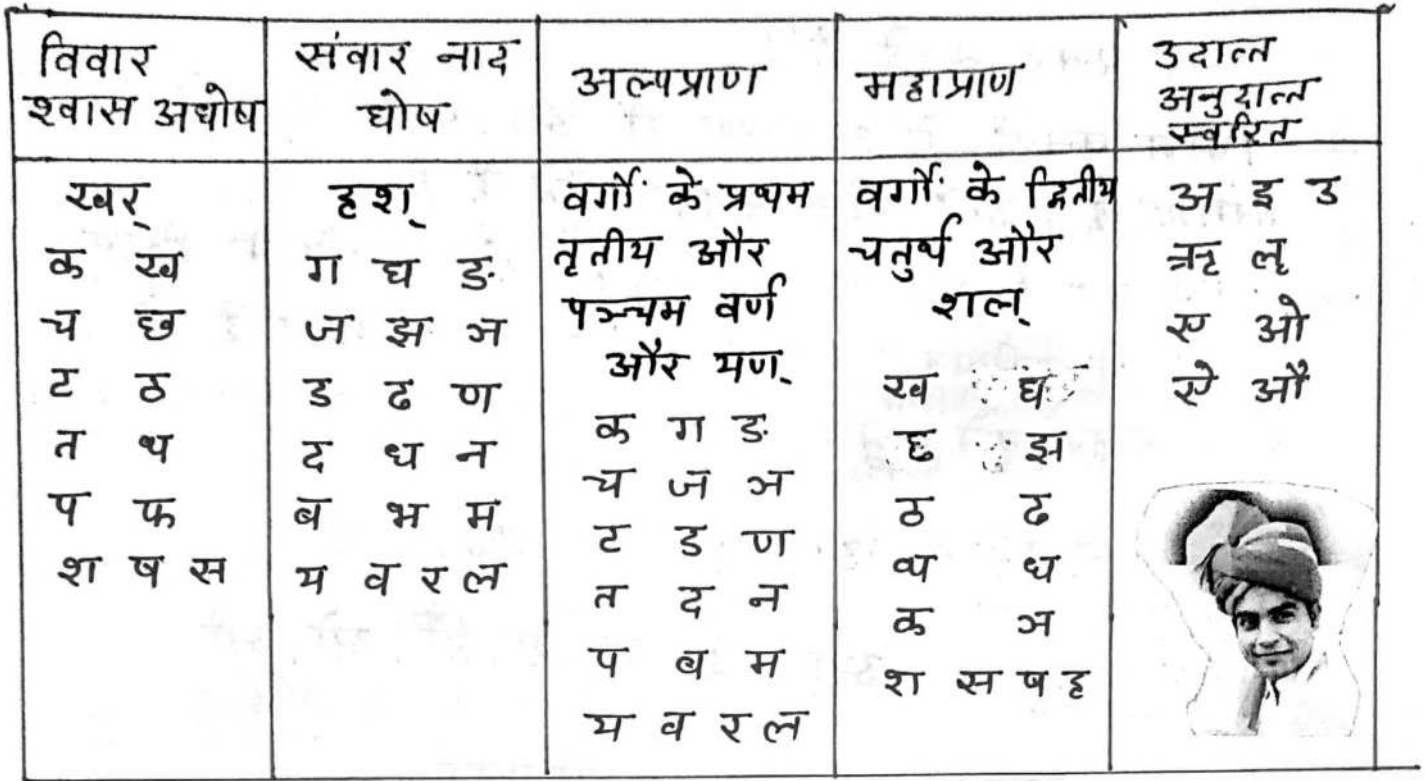 विवार
श्वास अघोष
संवार नाद
घोष
अल्पप्राण
महाप्राण
उदात्त
अनुदात्त
स्वरित
खर्
क ख
च छ
ट ठ
त थ
प फ
श ष स
हश्
ग घ ङ
ज झ ञ
ड ढ ण
द ध न
ब भ म
य व र ल
वर्गों के प्रथम
तृतीय और
पञ्चम वर्ण
और यण्
क ग ङ
च ज ञ
ट ड ण
त द न
प व म
य व र ल
वर्गों के द्वितीय
चतुर्थ और
शल्
ख घ
छ झ
ठ ढ
थ ध
क ञ
श स ष ह
अ इ उ
ऋ लृ
ए ओ
ऐ औ